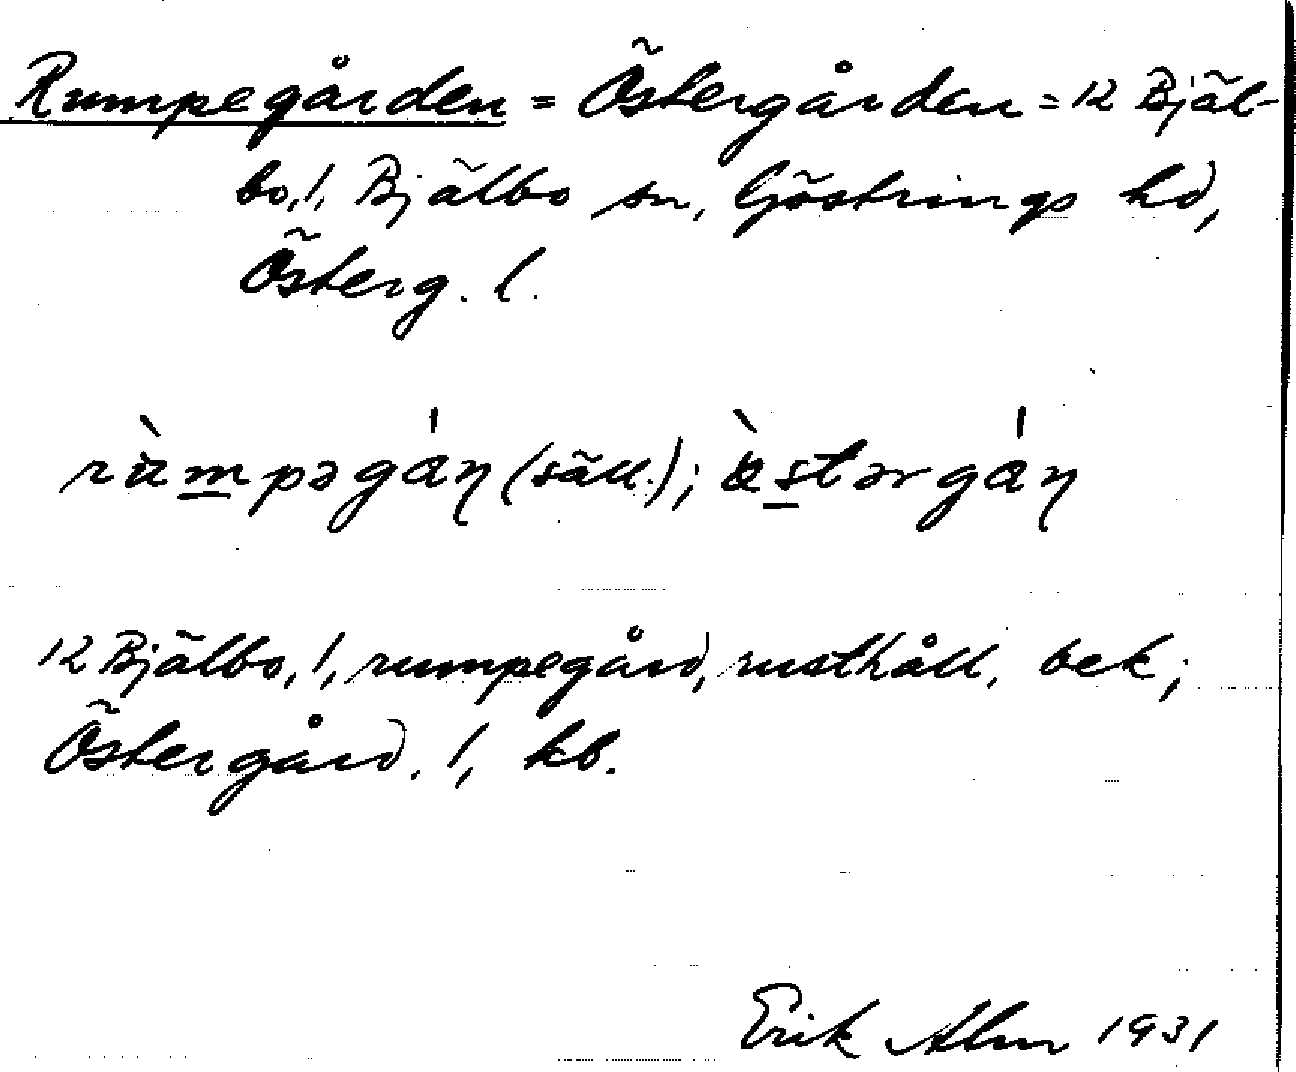 Rumpegården = Östergården = 12 Bjäl-
bo, 1, Bjälbo sn, Göstrings hd,
Österg. l.
rùmpəgán (säll.); ǿ̀stərgán
12 Bjälbo, 1, rumpegård, rusthåll, bek;
Östergård. 1, kb.
Erik Alm 1931